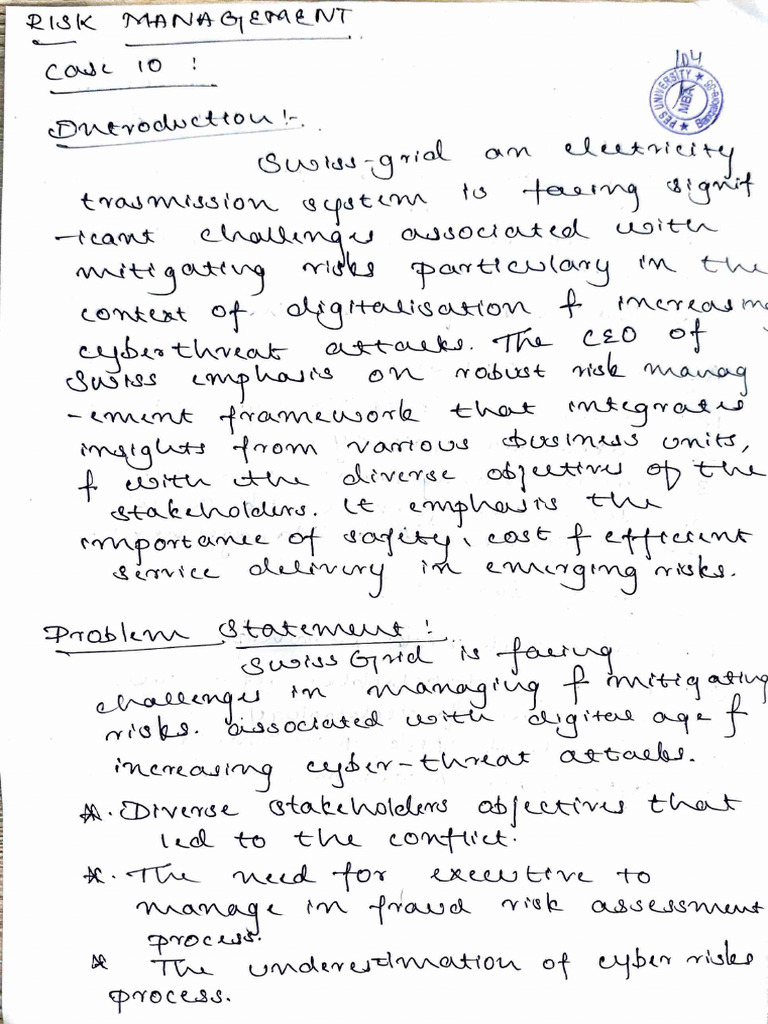 RISK MANAGEMENT
Case 10 :
104
PES UNIVERSITY ★ Bangalore-85 ★
MBA
Introduction :-
Swiss-grid an electricity
trasmission system is facing signif
-icant challenges associated with
mitigating risks particulary in the
context of digitalisation & increasing
cyberthreat attacks. The CEO of
Swiss emphasis on robust risk manag
-ement framework that integrates
insights from various business units,
& with the diverse objectives of the
stakeholders. It emphasis the
importance of safety, cost & efficient
service delivery in emerging risks.
Problem Statement :
Swiss Grid is facing
challenges in managing & mitigating
risks. associated with digital age &
increasing cyber-threat attacks.
★. Diverse stakeholders objectives that
led to the conflict.
★. The need for executive to
manage in fraud risk assessment
process.
★ The underestimation of cyber risks
process.